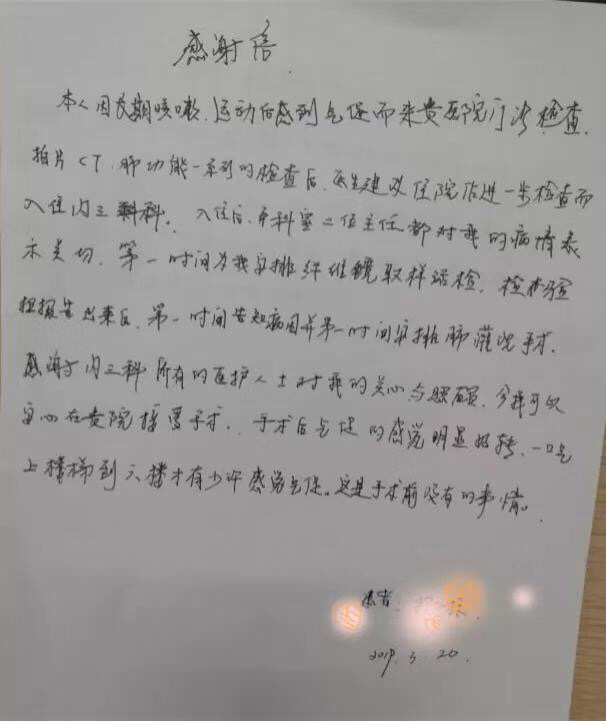 感谢信
本人因长期咳嗽、运动后感到气促而来贵医院门诊检查，
拍片CT、肺功能一系列的检查后，医生建议住院作进一步检查而
入住内三科。入住后，本科室二位主任都对我的病情表
示关切，第一时间为我安排纤维镜取样活检，检查验
报告出来后，第一时间告知病因并第一时间安排肺灌洗手术。
感谢内三科所有的医护人士对我的关心与照顾，令我可以
安心在贵院接受手术，手术后气促的感觉明显好转，一口气
上楼梯到六楼才有少许感觉气促。这是手术前没有的事情。
患者：
2019.3.20